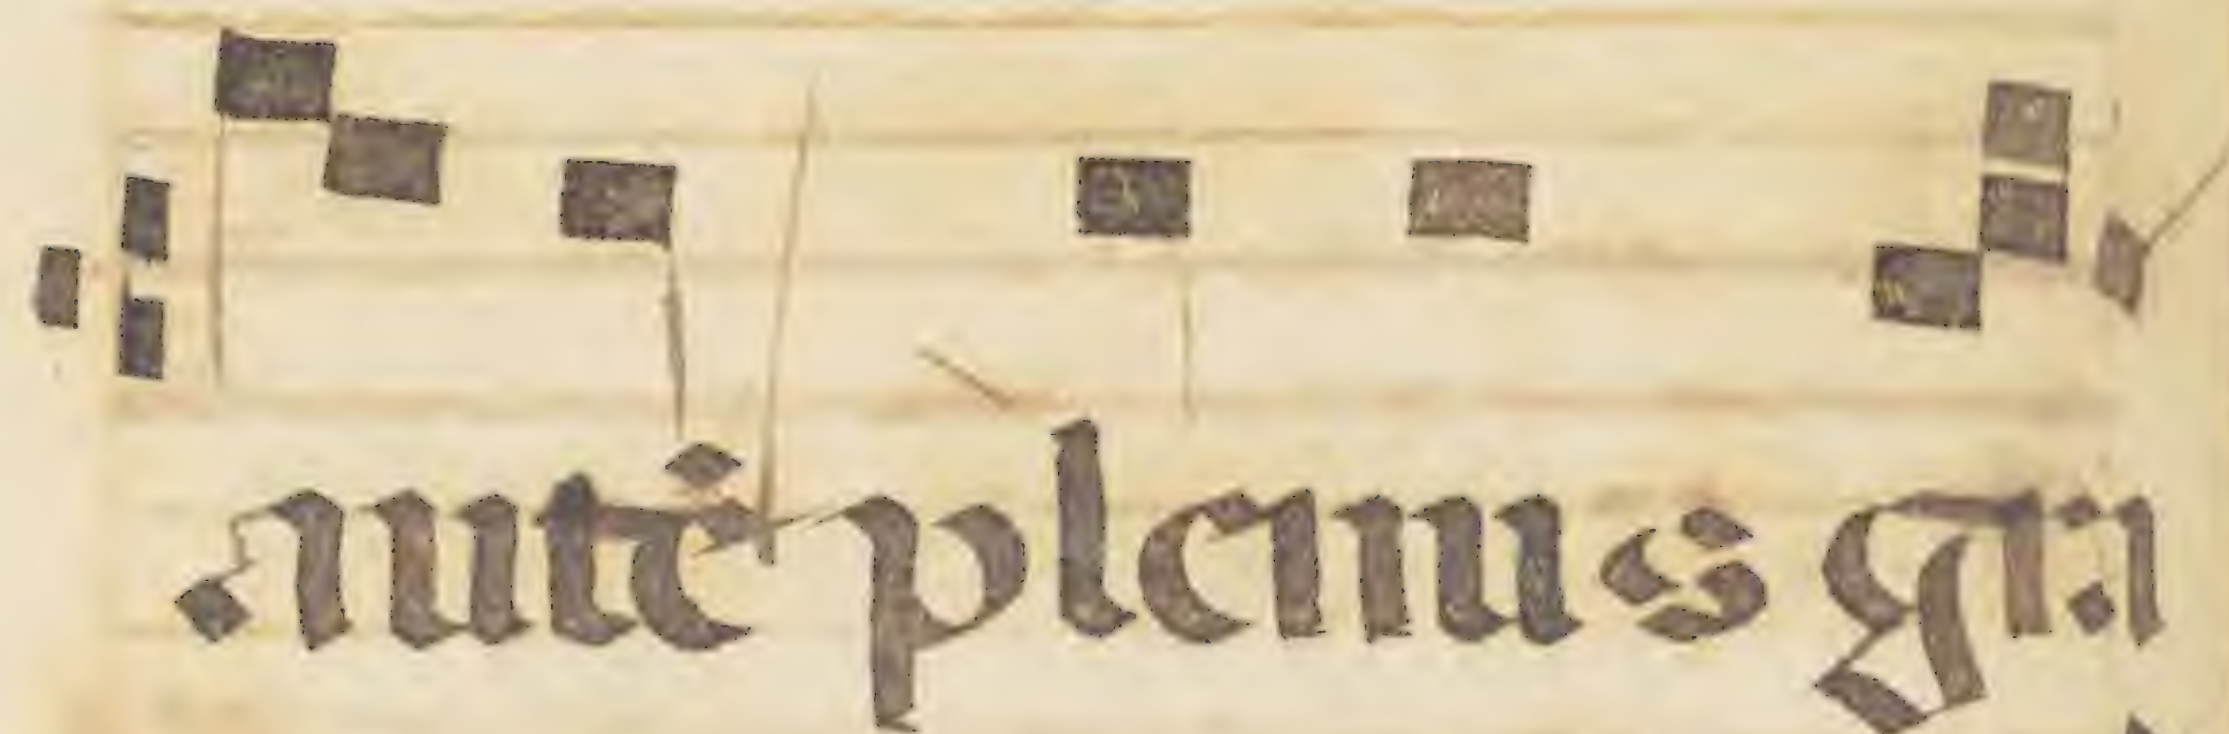 autē plenus gra